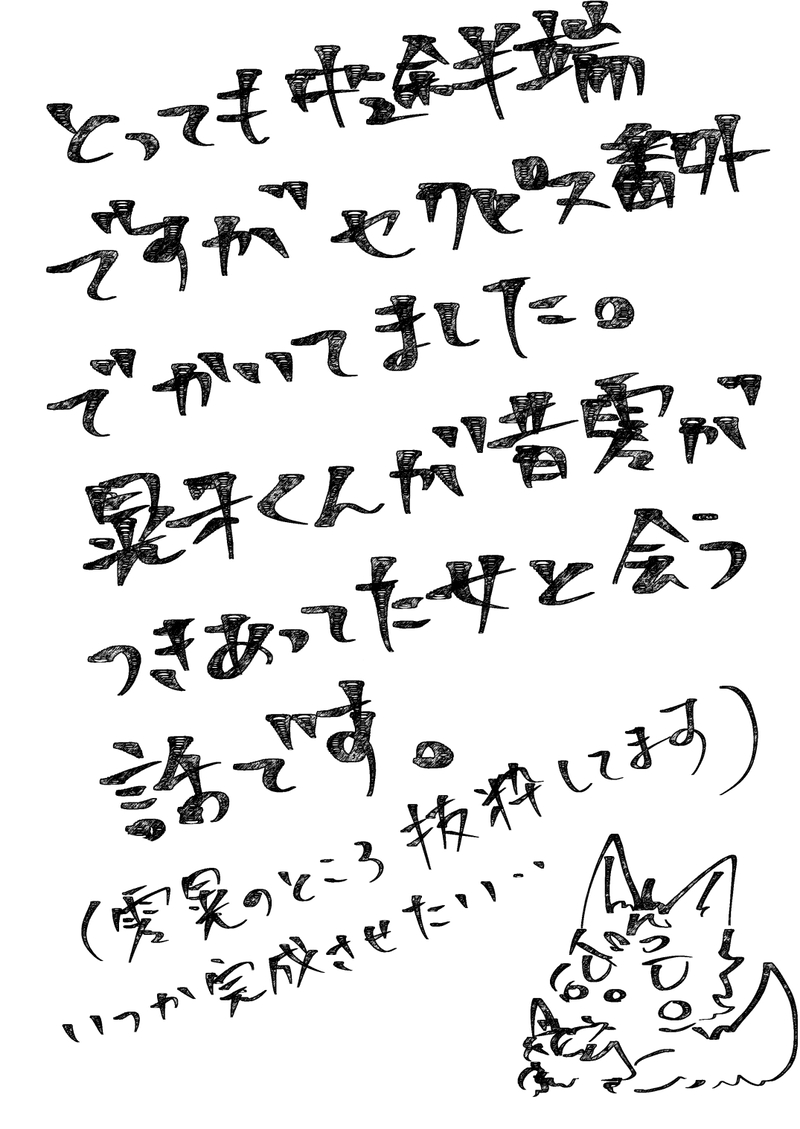 とっても 中途半端
ですが セクピス番外
でかいてました。
晃牙くんが昔零が
つきあってた女と会う
話です。
(零晃のところ抜粋してます)
いつか完成させたい‥